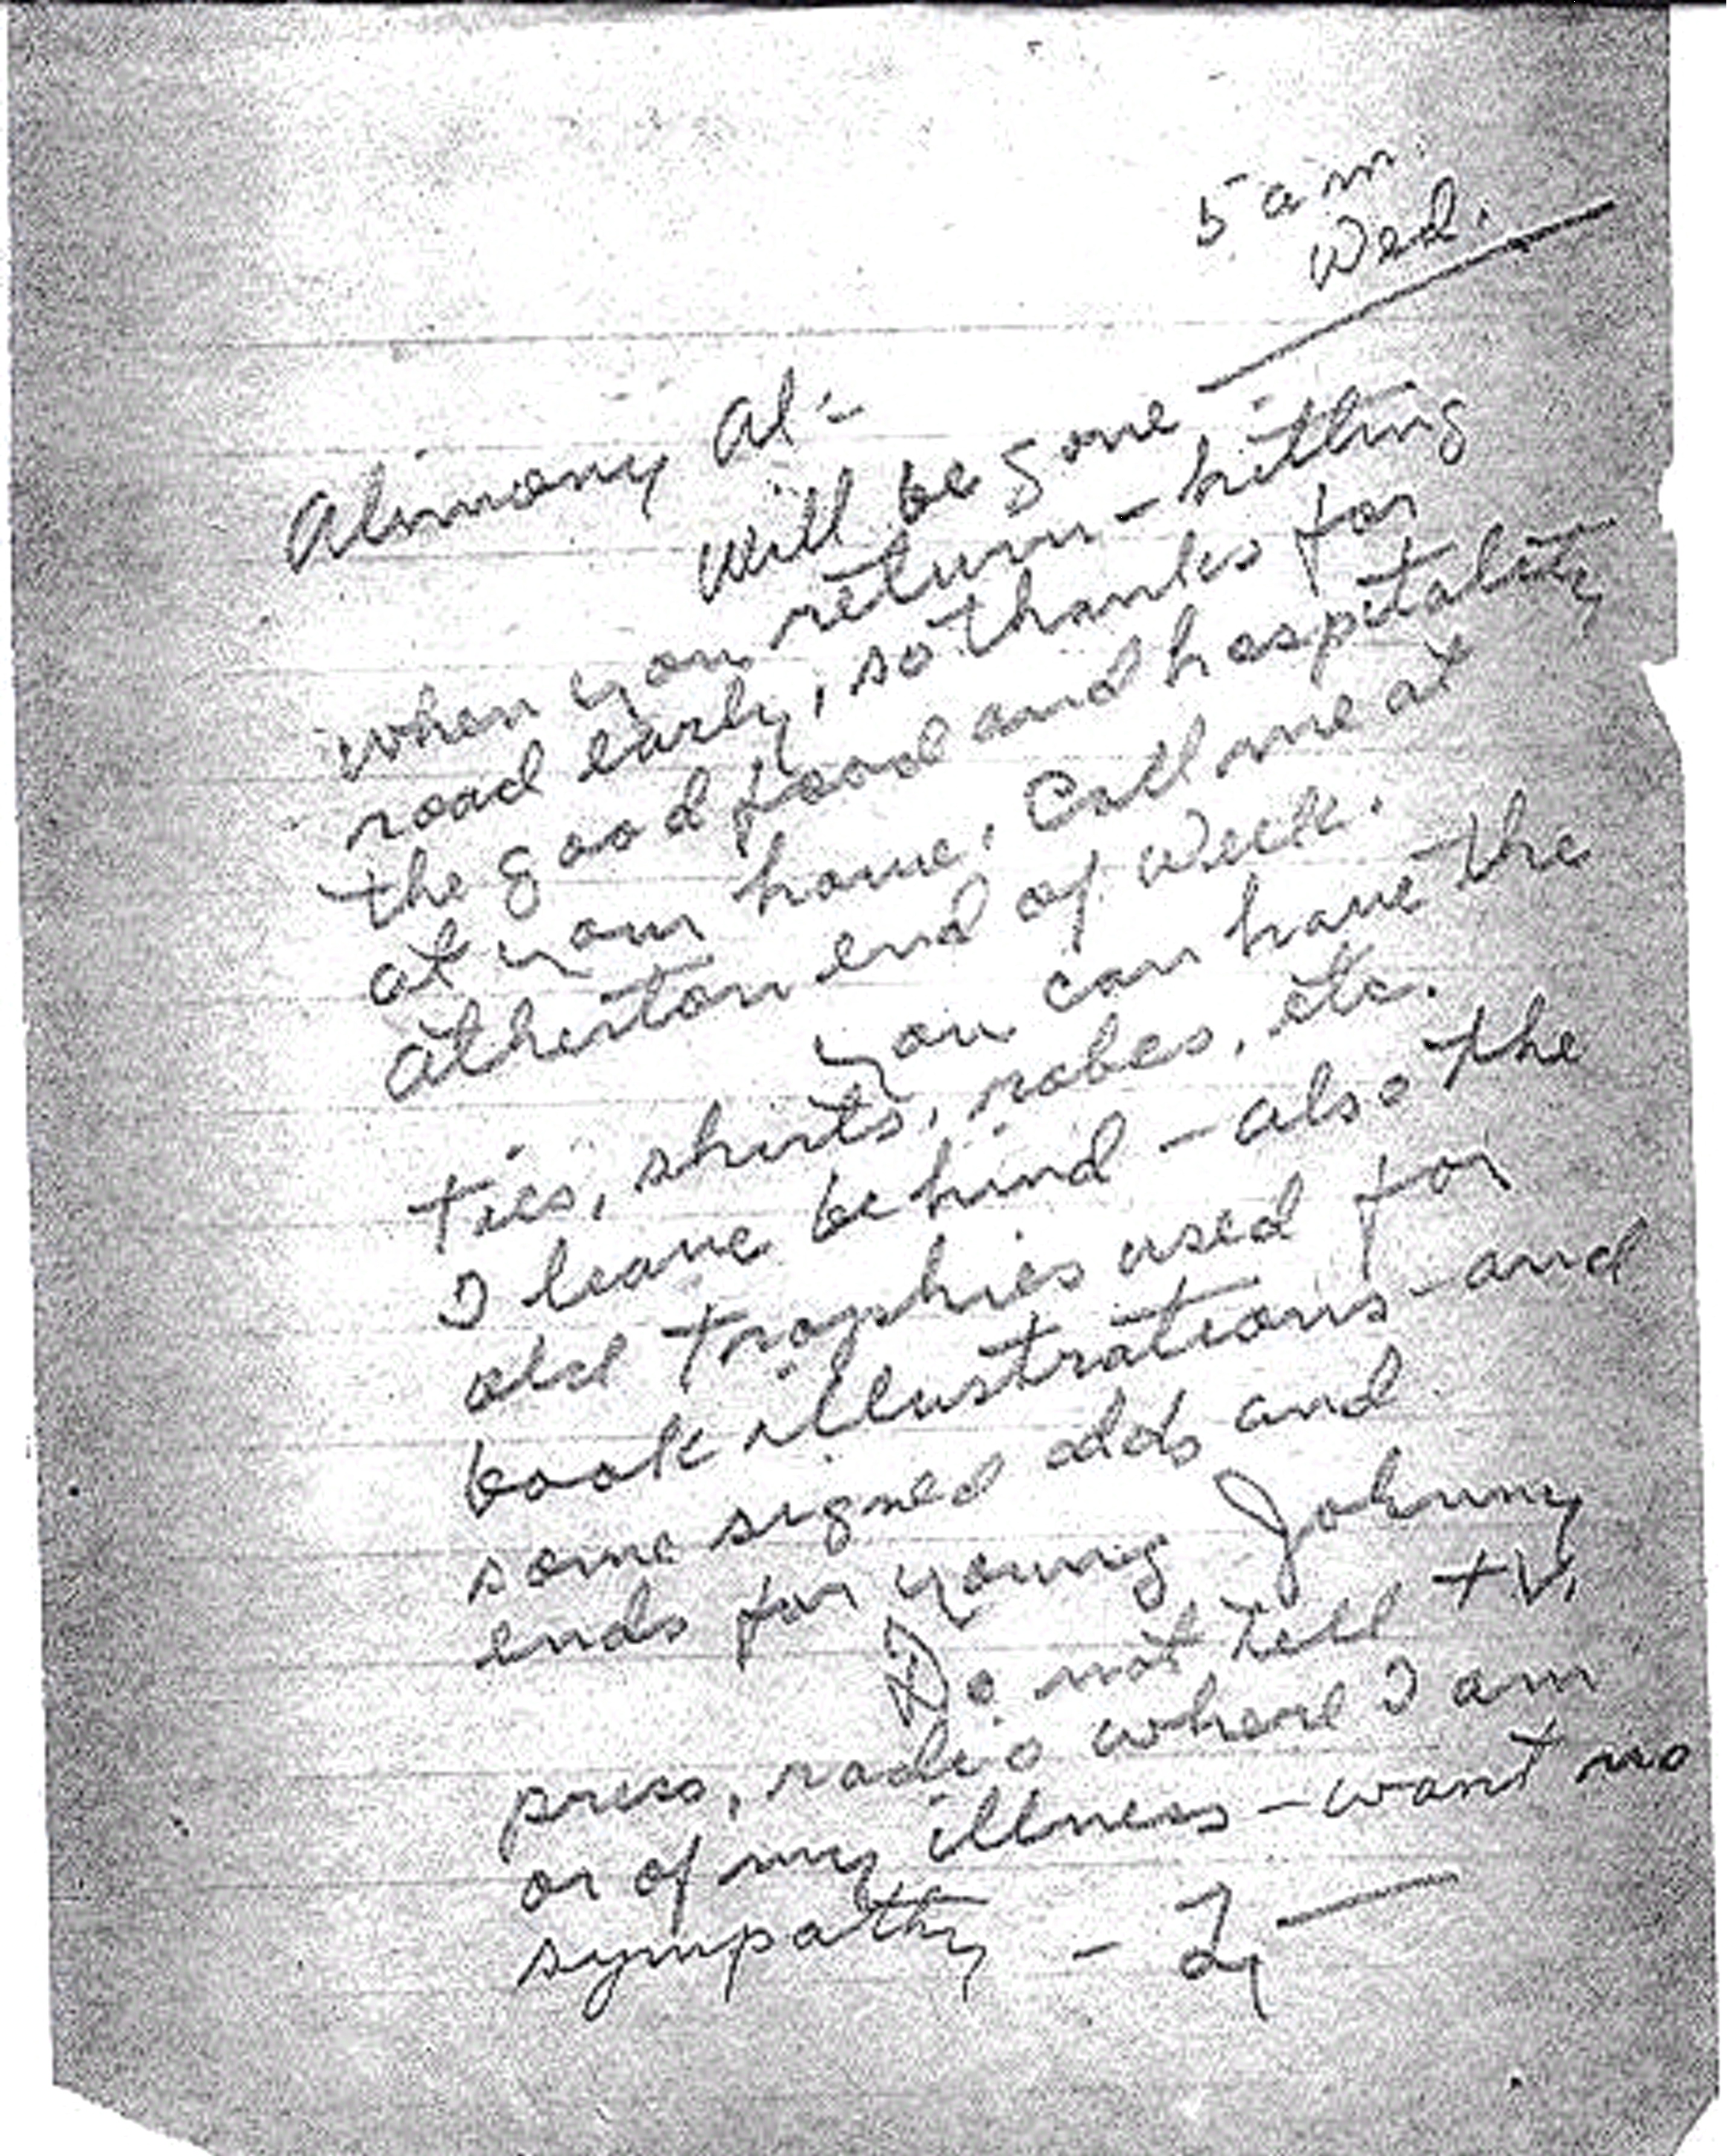 5 am.
Wed.
Alimony Al:-
Will be gone
when you return - hitting
road early, so thanks for
the good food and hospitality
at your home. Call me at
Atherton end of week.
You can have the
ties, shirts, robes, etc.
I leave behind - also the
old trophies used for
book illustrations - and
some signed odds and
ends for young Johnny
Do not tell TV,
press, radio where I am
or of my illness - want no
sympathy - Ty